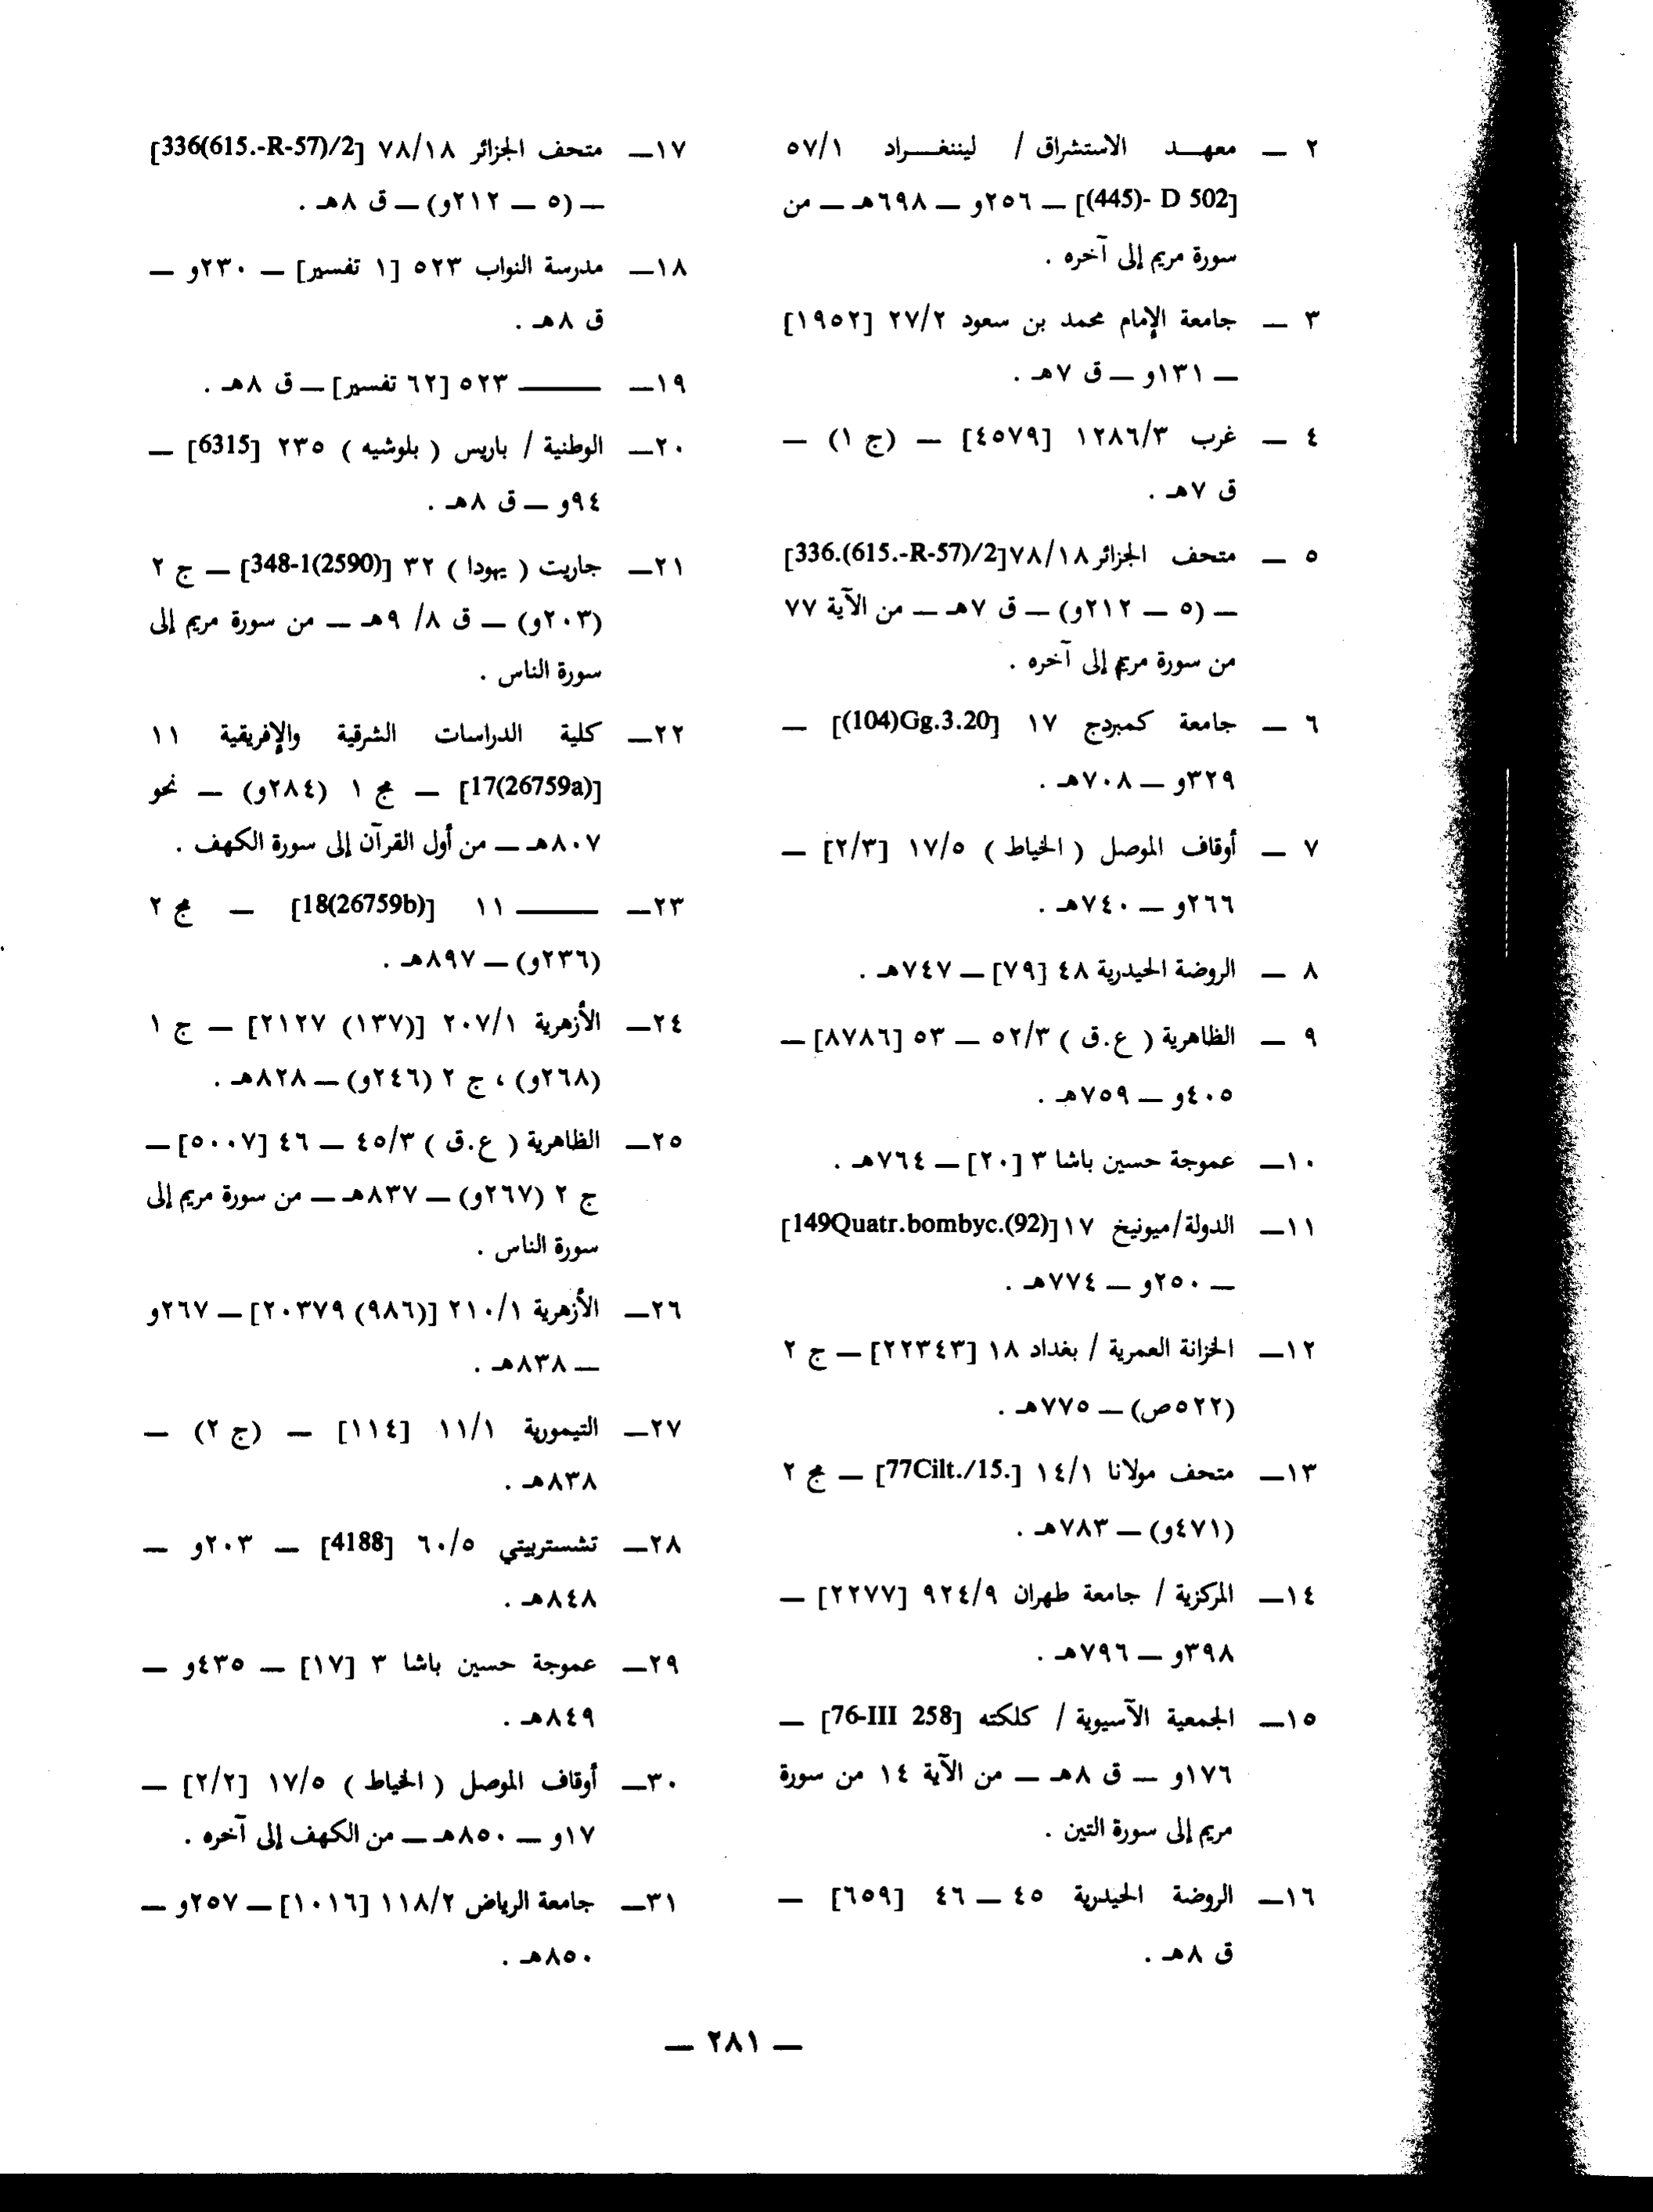 ٢ — معهـــد الاستشراق / ليننغـــراد ٥٧/١
[(445)- D 502] — ٢٥٦و — ٦٩٨هـ — من
سورة مريم إلى آخره .
٣ — جامعة الإمام محمد بن سعود ٢٧/٢ [١٩٥٢]
— ١٣١و — ق ٧هـ .
٤ — غرب ١٢٨٦/٣ [٤٥٧٩] — (ج ١) —
ق ٧هـ .
٥ — متحف الجزائر ٧٨/١٨ [336.(615.-R-57)/2]
— (٥ — ٢١٢و) — ق ٧هـ — من الآية ٧٧
من سورة مريم إلى آخره .
٦ — جامعة كمبردج ١٧ [(104)Gg.3.20] —
٣٢٩و — ٧٠٨هـ .
٧ — أوقاف الموصل ( الخياط ) ١٧/٥ [٢/٣] —
٢٦٦و — ٧٤٠هـ .
٨ — الروضة الحيدرية ٤٨ [٧٩] — ٧٤٧هـ .
٩ — الظاهرية ( ع.ق ) ٥٢/٣ — ٥٣ [٨٧٨٦] —
٤٠٥و — ٧٥٩هـ .
١٠— عموجة حسين باشا ٣ [٢٠] — ٧٦٤هـ .
١١— الدولة/ميونيخ ١٧ [149Quatr.bombyc.(92)]
— ٢٥٠و — ٧٧٤هـ .
١٢— الخزانة العمرية / بغداد ١٨ [٢٢٣٤٣] — ج ٢
(٥٢٢ص) — ٧٧٥هـ .
١٣— متحف مولانا ١٤/١ [77Cilt./15.] — مج ٢
(٤٧١و) — ٧٨٣هـ .
١٤— المركزية / جامعة طهران ٩٢٤/٩ [٢٢٧٧] —
٣٩٨و — ٧٩٦هـ .
١٥— الجمعية الآسيوية / كلكته [76-III 258] —
١٧٦و — ق ٨هـ — من الآية ١٤ من سورة
مريم إلى سورة التين .
١٦— الروضة الحيدرية ٤٥ — ٤٦ [٦٥٩] —
ق ٨هـ .
١٧— متحف الجزائر ٧٨/١٨ [336(615.-R-57)/2]
— (٥ — ٢١٢و) — ق ٨هـ .
١٨— مدرسة النواب ٥٢٣ [١ تفسير] — ٢٣٠و —
ق ٨هـ .
١٩— ——— ٥٢٣ [٦٢ تفسير] — ق ٨هـ .
٢٠— الوطنية / باريس ( بلوشيه ) ٢٣٥ [6315] —
٩٤و — ق ٨هـ .
٢١— جاريت ( يهودا ) ٣٢ [348-1(2590)] — ج ٢
(٢٠٣و) — ق ٨/ ٩هـ — من سورة مريم إلى
سورة الناس .
٢٢— كلية الدراسات الشرقية والإفريقية ١١
[17(26759a)] — مج ١ (٢٨٤و) — نحو
٨٠٧هـ — من أول القرآن إلى سورة الكهف .
٢٣— ——— ١١ [18(26759b)] — مج ٢
(٢٣٦و) — ٨٩٧هـ .
٢٤— الأزهرية ٢٠٧/١ [(١٣٧) ٢١٢٧] — ج ١
(٢٦٨و) ، ج ٢ (٢٤٦و) — ٨٢٨هـ .
٢٥— الظاهرية ( ع.ق ) ٤٥/٣ — ٤٦ [٥٠٠٧] —
ج ٢ (٢٦٧و) — ٨٣٧هـ — من سورة مريم إلى
سورة الناس .
٢٦— الأزهرية ٢١٠/١ [(٩٨٦) ٢٠٣٧٩] — ٢٦٧و
— ٨٣٨هـ .
٢٧— التيمورية ١١/١ [١١٤] — (ج ٢) —
٨٣٨هـ .
٢٨— تشستربيتي ٦٠/٥ [4188] — ٢٠٣و —
٨٤٨هـ .
٢٩— عموجة حسين باشا ٣ [١٧] — ٤٣٥و —
٨٤٩هـ .
٣٠— أوقاف الموصل ( الخياط ) ١٧/٥ [٢/٢] —
١٧و — ٨٥٠هـ — من الكهف إلى آخره .
٣١— جامعة الرياض ١١٨/٢ [١٠١٦] — ٢٥٧و —
٨٥٠هـ .
— ٢٨١ —